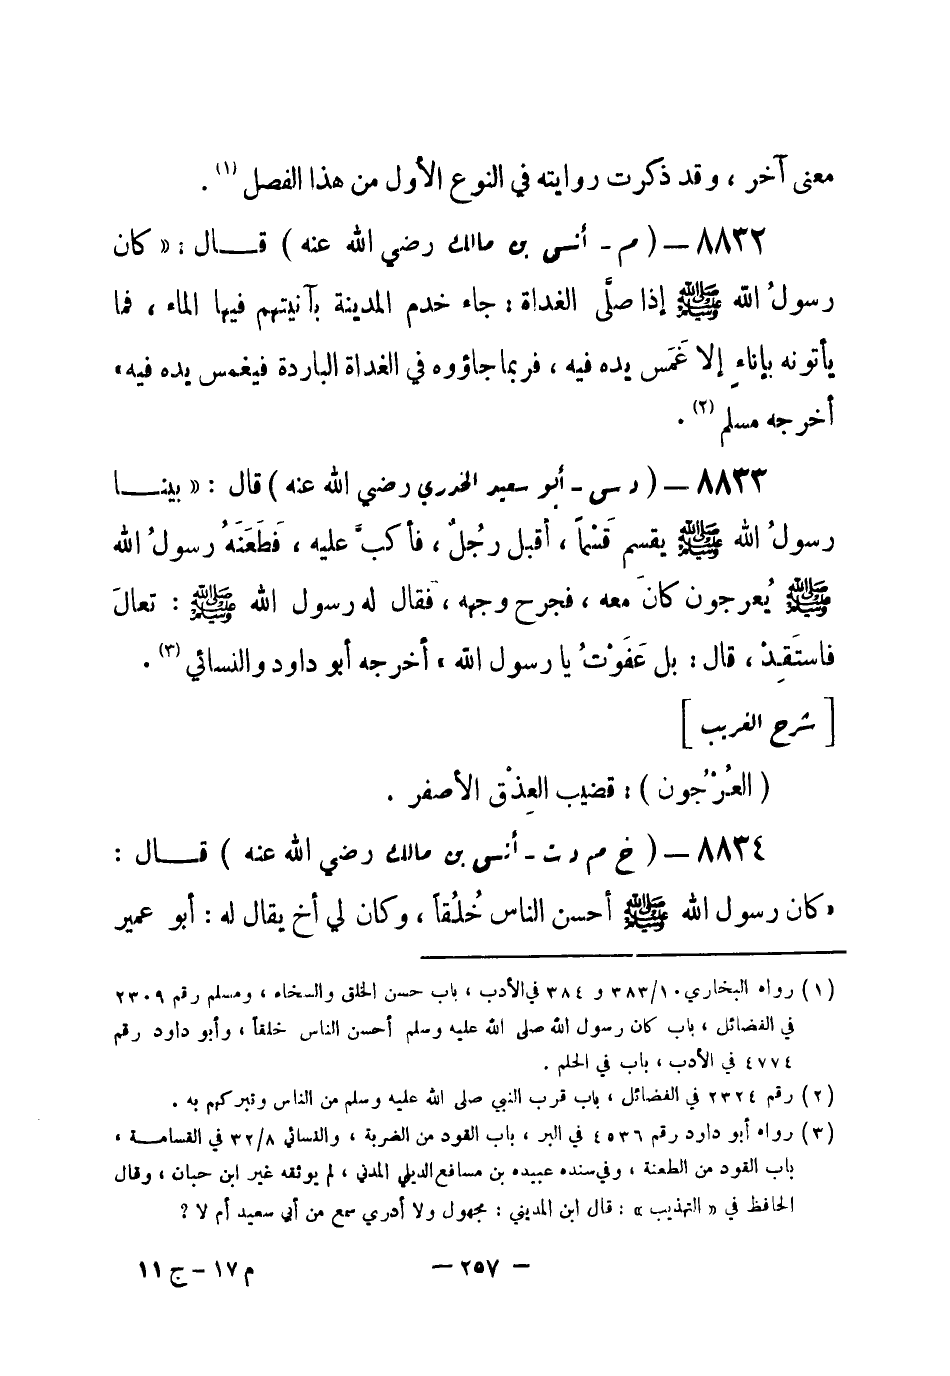 معنى آخر ، وقد ذكرت روايته في النوع الأول من هذا الفصل (١) .
٨٨٣٢ – ( م - أنس بن مالك رضي الله عنه ) قـــال : « كان
رسولُ الله ﷺ إذا صلَّى الغداة : جاء خدم المدينة بآنيتهم فيها الماء ، فما
يأتونه بإناءٍ إلا غَمَس يده فيه ، فربما جاؤوه في الغداة الباردة فيغمس يده فيه »
أخرجه مسلم (٢) .
٨٨٣٣ – ( د س - أبو سعيد الخدري رضي الله عنه ) قال : « بينـــا
رسولُ الله ﷺ يقسم قَسْماً ، أقبل رجُلٌ ، فأكبَّ عليه ، فَطَعَنَهُ رسولُ الله
ﷺ بُعرجون كانَ معه ، فجرح وجهه ، فقال له رسول الله ﷺ : تعالَ
فاستَقِدْ ، قال : بل عَفَوْتُ يا رسول الله » أخرجه أبو داود والنسائي (٣) .
[ شرح الغريب ]
( العُرْجُون ) : قضيب العِذْق الأصفر .
٨٨٣٤ – ( خ م د ت - أنس بن مالك رضي الله عنه ) قـــال :
« كان رسول الله ﷺ أحسن الناس خُلُقاً ، وكان لي أخ يقال له : أبو عمير
(١) رواه البخاري ٣٨٣/١٠ و ٣٨٤ في الأدب ، باب حسن الخلق والسخاء ، ومسلم رقم ٢٣٠٩
في الفضائل ، باب كان رسول الله صلى الله عليه وسلم أحسن الناس خلقاً ، وأبو داود رقم
٤٧٧٤ في الأدب ، باب في الحلم .
(٢) رقم ٢٣٢٤ في الفضائل ، باب قرب النبي صلى الله عليه وسلم من الناس وتبركهم به .
(٣) رواه أبو داود رقم ٤٥٣٦ في البر ، باب القود من الضربة ، والنسائي ٣٢/٨ في القسامـــة ،
باب القود من الطعنة ، وفي سنده عبيده بن مسافع الديلي المدني ، لم يوثقه غير ابن حبان ، وقال
الحافظ في « التهذيب » : قال ابن المديني : مجهول ولا أدري سمع من أبي سعيد أم لا ؟
– ٢٥٧ –
م ١٧ – ج ١١